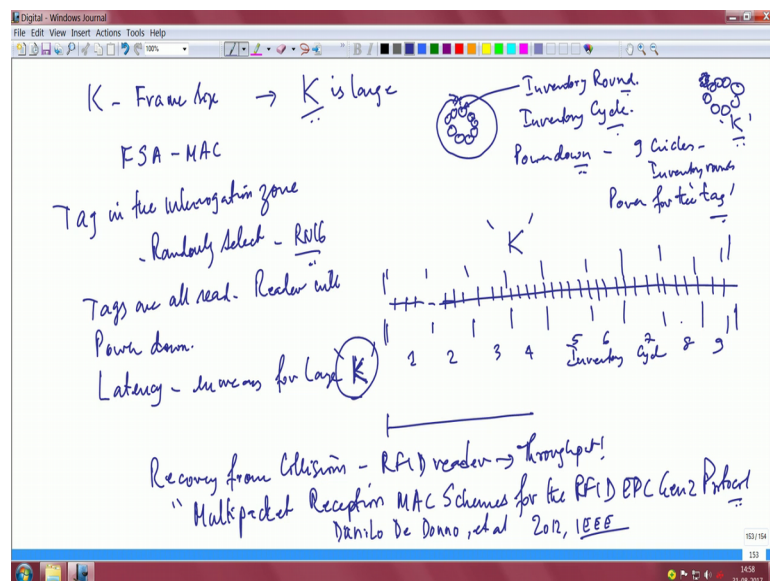 Digital - Windows Journal
File Edit View Insert Actions Tools Help
100%
K - Frame size → K is large
FSA - MAC
Tag in the Interrogation zone
- Randomly select - RN16
Tags are all read. Reader will
Power down.
Latency - increases for large K
Inventory Round.
Inventory Cycle.
Power down - 9 Circles -
Inventory rounds
Power for the tag!
'K'
'K'
1 2 3 4 5 6 7 8 9
Inventory Cycle
Recovery from Collision - RFID reader → Throughput!
" Multipacket Reception MAC Schemes for the RFID EPC Gen2 Protocol
Danilo De Donno, et al 2012, IEEE
153/154
153
14:58
31-08-2017